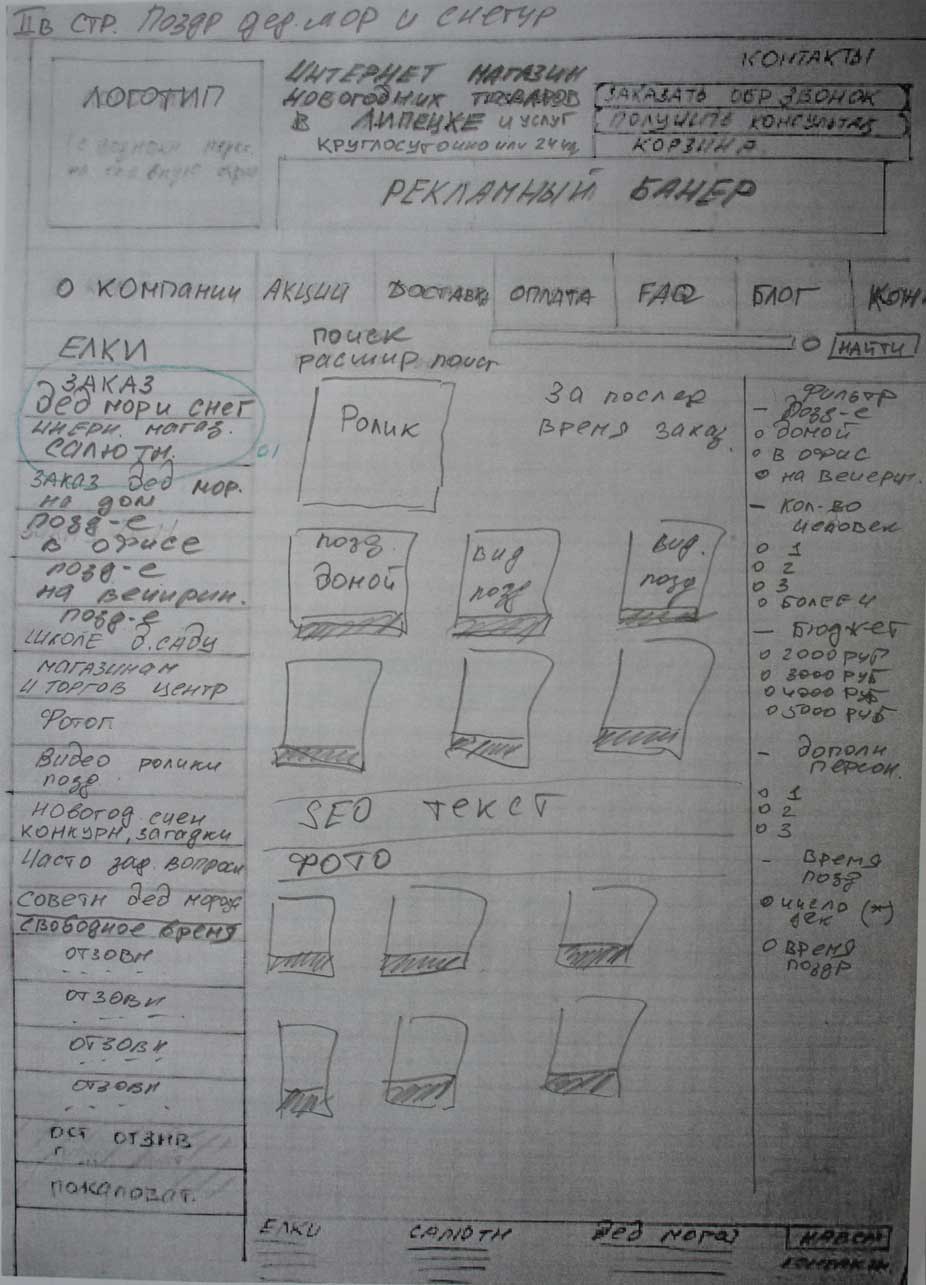 IIв СТР. Поздр дед.мор и снегур
КОНТАКТЫ
ЛОГОТИП
ИНТЕРНЕТ МАГАЗИН
НОВОГОДНИХ ТОВАРОВ
В ЛИПЕЦКЕ и услуг
КРУГЛОСУТОЧНО или 24 ча
ЗАКАЗАТЬ ОБР ЗВОНОК
ПОЛУЧИТЬ КОНСУЛЬТАЦ
КОРЗИНА
РЕКЛАМНЫЙ БАНЕР
О КОМПАНИИ АКЦИИ ДОСТАВКА ОПЛАТА FAQ БЛОГ КОН
ЕЛКИ
ЗАКАЗ
ДЕД МОР И СНЕГ
САЛЮТЫ.
ЗАКАЗ ДЕД МОР.
НА ДОМ
ПОЗД-Е
В ОФИСЕ
ПОЗД-Е
НА ВЕЧИРИН.
ПОЗД-Е
ШКОЛЕ Д.САДУ
МАГАЗИНАМ
И ТОРГОВ ЦЕНТР
ФОТОГ
ВИДЕО РОЛИКИ
ПОЗД.
НОВОГОД СЦЕН
КОНКУРН, ЗАГАДКИ
ЧАСТО ЗАД. ВОПРОСЫ
СОВЕТЫ ДЕД МОРОЗА
СВОБОДНОЕ ВРЕМЯ
ОТЗОВЫ
ОТЗОВЫ
ОТЗОВЫ
ОТЗОВЫ
ОСТ ОТЗЫВ
ПОЖАЛОВАТ.
ПОИСК
РАСШИР ПОИСК
НАЙТИ
РОЛИК
ЗА ПОСЛЕД
ВРЕМЯ ЗАКАЗ.
ПОЗД.
ДОМОЙ
ВИД
ПОЗД
ВИД.
ПОЗД
SEO ТЕКСТ
ФОТО
ФИЛЬТР
– ПОЗД-Е
о ДОМОЙ
о В ОФИС
о НА ВЕЧЕРИН.
– КОЛ-ВО
ЧЕЛОВЕК
о 1
о 2
о 3
о БОЛЕЕ 4
– БЮДЖЕТ
о 2000 РУБ
о 3000 РУБ
о 4000 РУБ
о 5000 РУБ
– ДОПОЛН
ПЕРСОН.
о 1
о 2
о 3
– ВРЕМЯ
ПОЗД
о ЧИСЛО
ДЕК (*)
о ВРЕМЯ
ПОЗДР
ЕЛКИ САЛЮТЫ ДЕД МОРОЗ НАВЕРХ
КОНТАКТЫ